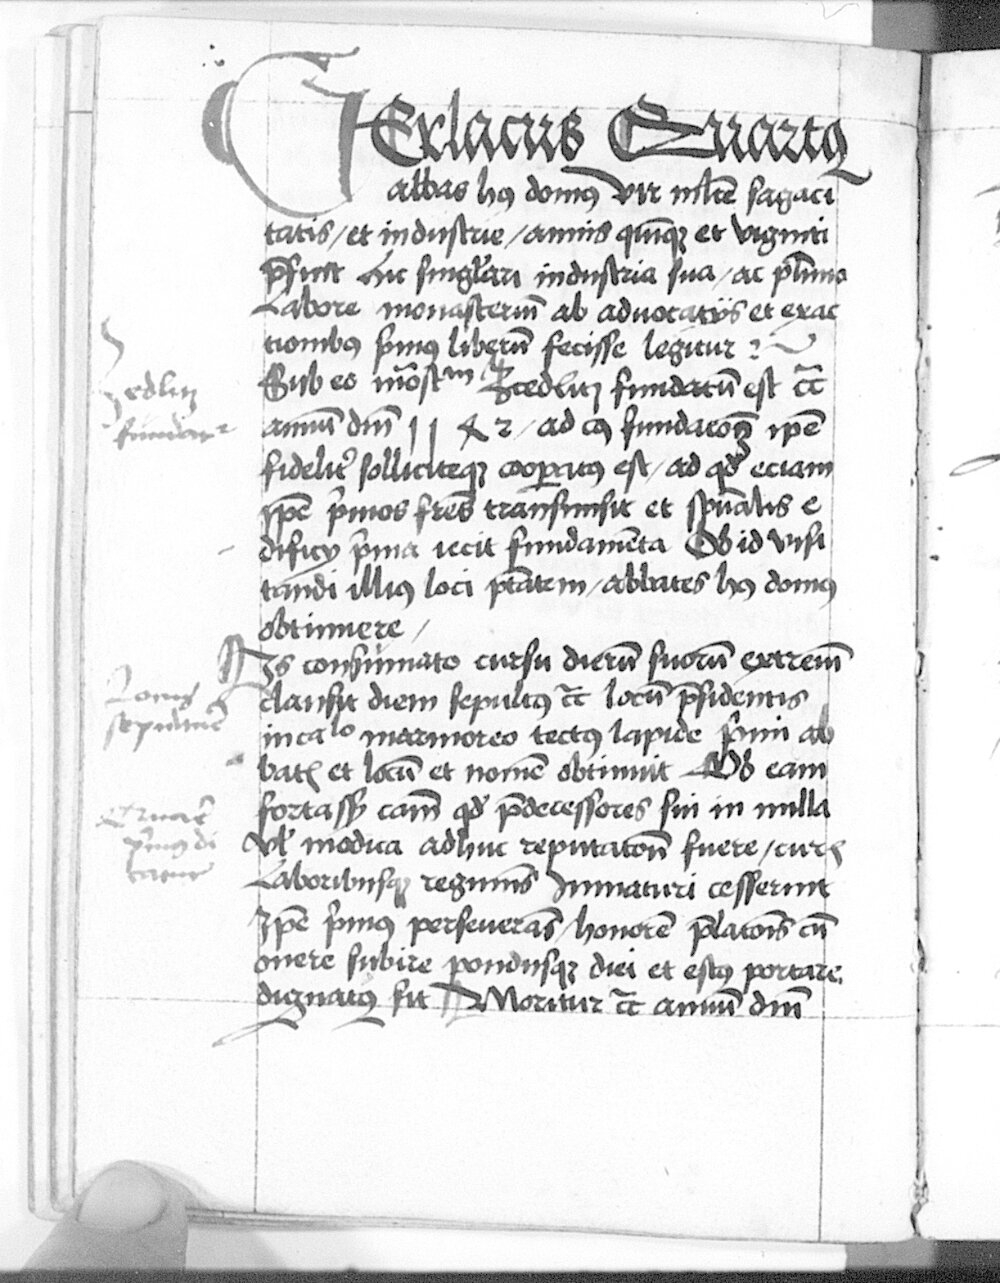 GErlacus Quartus
abbas huius domus vir multe sagaci
tatis / et industrie / annis quinque et viginti
prefuit hic singulari industria sua / ac plurimo
Labore monasterium ab advocatiis et exac
tionibus primus liberum fecisse legitur
Sub eo monasterium Zcedlitz fundatum est circa
annum domini 1142 / ad cuius fundacionem ipse
fideliter solliciteque cooperatus est / ad quod eciam
ipse primos fratres transmisit et spiritualis e
dificii prima iecit fundamenta Ob id visi
tandi illius loci potestatem / abbates huius domus
obtinuere /
Is consummato cursu dierum suorum extremum
clausit diem sepultus circa locum presidentis
in capitulo marmoreo tectus lapide primi ab
batis et locum et nomen obtinuit Ob eam
fortassis causam quod predecessores sui in nulla
vel modica adhuc reputatione fuere / curis
Laboribusque regiminis Immaturi cesserunt
Ipse primus perseverans / honorem prelationis cum
onere subire pondusque diei et estus portare
dignatus sit Moritur circa annum domini
Zedlitz
fundatur
Locus
sepulture
Quare
primus di
catur